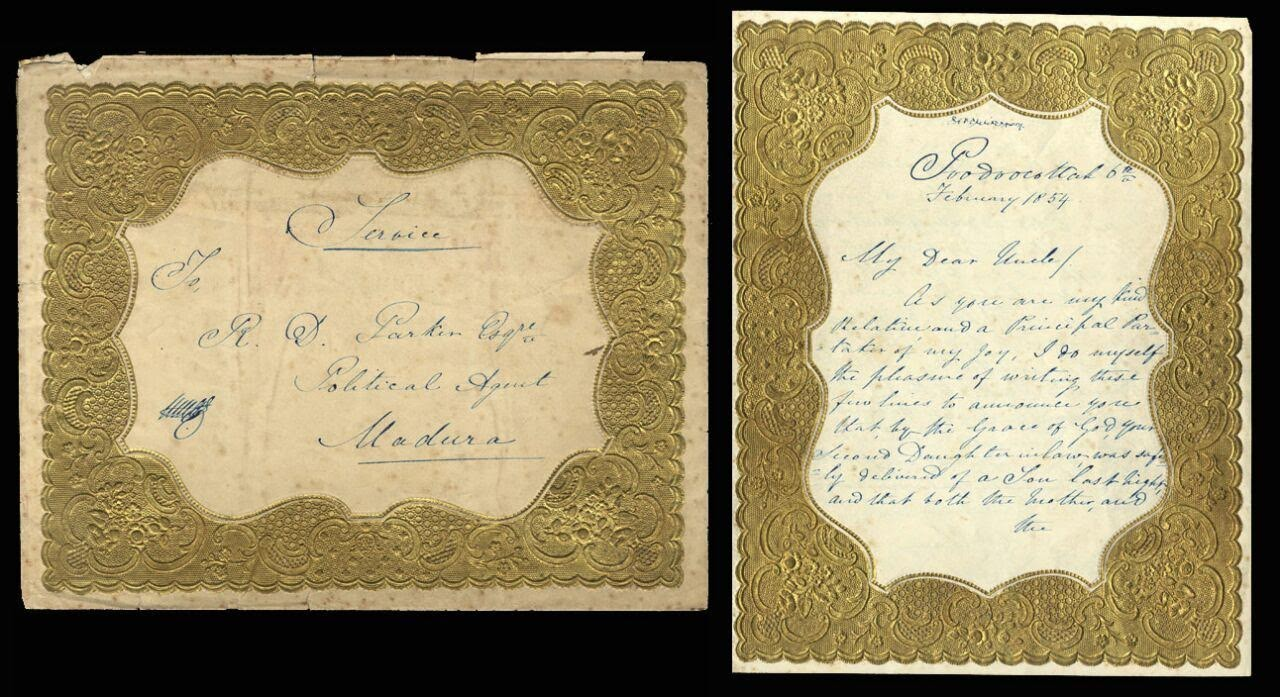 Service
To,
R. D. Parker Esqre
Political Agent
Madura
Poodoocottah 6th
February 1854
My Dear Uncle/
As you are my kind
Relative and a Principal Par-
taker of my Joy, I do myself
the pleasure of writing these
few lines to announce you
that, by the Grace of God your
Second Daughter in law was safe-
=ly delivered of a Son last night,
and that both the Mother, and
the